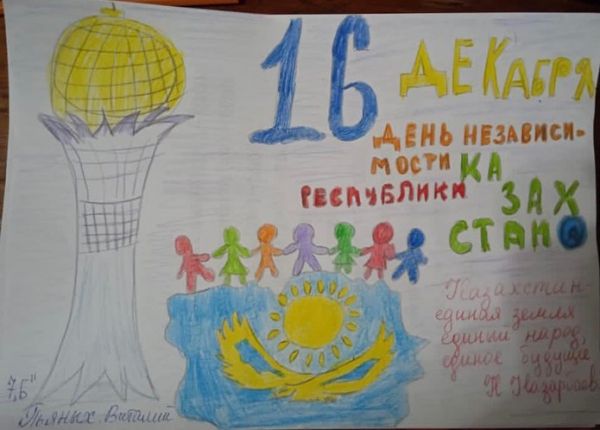 16 ДЕКАБРЯ
ДЕНЬ НЕЗАВИСИ-
МОСТИ
РЕСПУБЛИКИ
КА
ЗАХ
СТАНО
Казахстан-
единая земля
единый народ,
единое будущее
Н Назарбаев
7,Б"
Пьяных Виталий